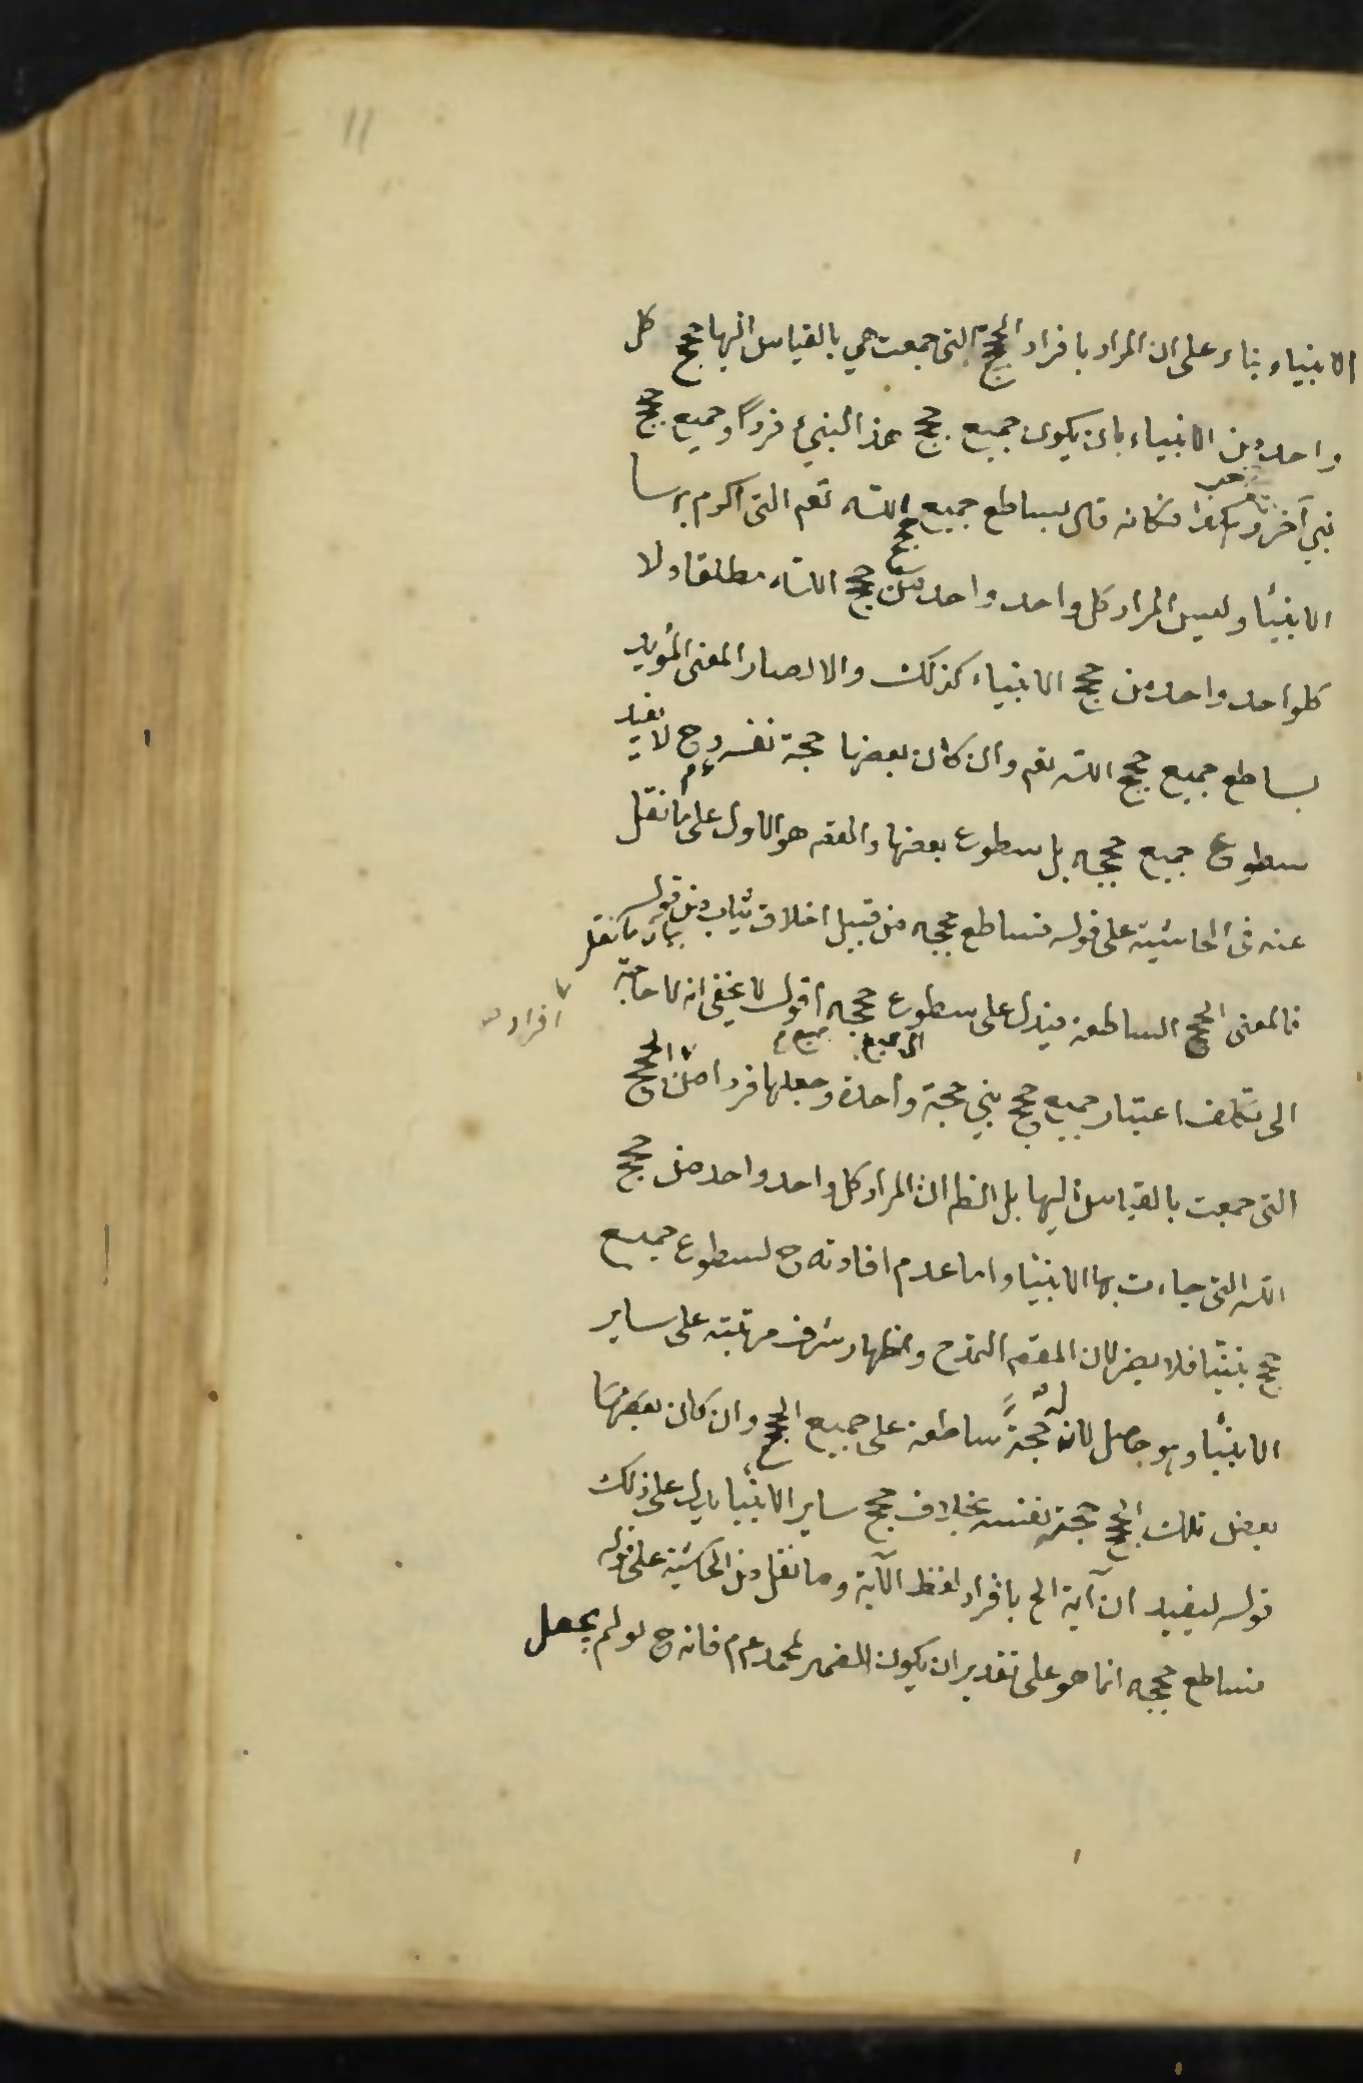 11
الانبياء بناء على ان المراد بافراد الحجج التى جمعت هي بالقياس اليها حجج كل
واحد من الانبياء بان يكون جميع حجج هذا النبي فردًا وجميع حجج
نبي آخر فردا فكانه قال بساطع جميع حجج الله تعم التى اكرم بها
الانبئا وليس المراد كل واحد واحد من حجج الله مطلقا ولا
كلواحد واحد من حجج الانبياء كذلك والا لصار المعنى المؤيد
بساطع جميع حجج الله تعم وان كان بعضها حجة نفسه وح لا يفيد
سطوع جميع حججه بل سطوع بعضها والمقم هو الاول على ما نقل
عنه فى الحاشية على قوله فساطع حججه من قبيل اخلاق ثياب
فالمعنى الحجج الساطعة فيدل على سطوع حججه اقول لا يخفى انه لا حاجة
افراد
الى تكلف اعتبار جميع حجج نبي حجة واحدة وجعلها فردا من الحجج
التى جمعت بالقياس اليها بل الظم ان المراد كل واحد واحد من حجج
الله التى جاءت بها الانبئا واما عدم افادته ح لسطوع جميع
حجج نبينا فلا يضر لان المقم المدح واظهار شرف مرتبته على ساير
الانبئا وهو حاصل لان له حجةً ساطعة على جميع الحجج وان كان بعضها
بعض تلك الحجج حجة نفسه بخلاف حجج ساير الانبئا يدل على ذلك
قوله ليفيد ان آية الخ بافراد لفظ الآية وما نقل من الحاشية على قوله
فساطع حججه انما هو على تقدير ان يكون الضمير لمحمد عم فانه ح لو لم يجعل